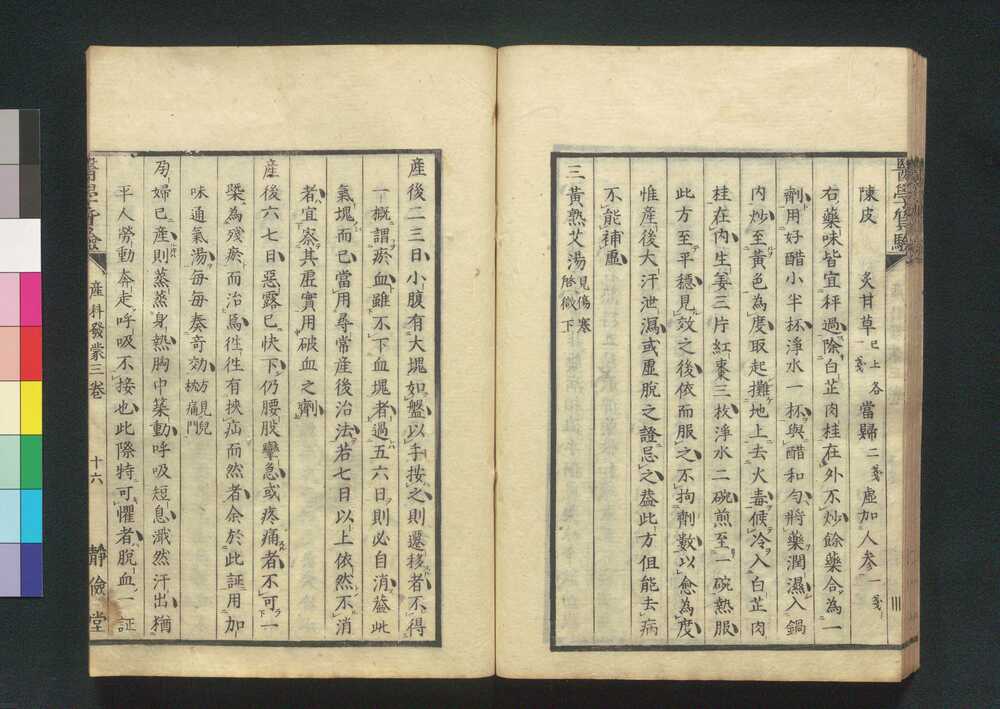 陳皮　炙甘草已上各一戔　當歸二戔虛加人參一戔
右藥味皆宜秤過除白芷肉桂在外不炒餘藥合為一
劑用好醋小半抔淨水一抔與醋和勻將藥潤濕入鍋
內炒至黃色為度取起攤地上去火毒候冷入白芷肉
桂在內生姜三片紅棗三枚淨水二碗煎至一碗熱服
此方至平穩見效之後依而服之不拘劑數以愈為度
惟産後大汗泄瀉或虛脫之證忌之蓋此方但能去病
不能補虛
三黃熟艾湯見傷寒啓微下
産後二三日小腹有大塊如盤以手按之則遷移者不得
一概謂瘀血雖不下血塊者過五六日則必自消蓋此
氣塊而已當用尋常産後治法若七日以上依然不消
者宜察其虛實用破血之劑
産後六七日惡露已快下仍腰股攣急或疼痛者不可一
槩為殘瘀而治焉徃徃有挾疝而然者余於此証用加
味通氣湯每每奏奇効方見兒枕痛門
孕婦已產則蒸蒸身熱胸中築動呼吸短息濈然汗出猶
平人勞動奔走呼吸不接也此際特可懼者脫血一証
醫學質驗
産科發蒙三卷
十六
靜儉堂